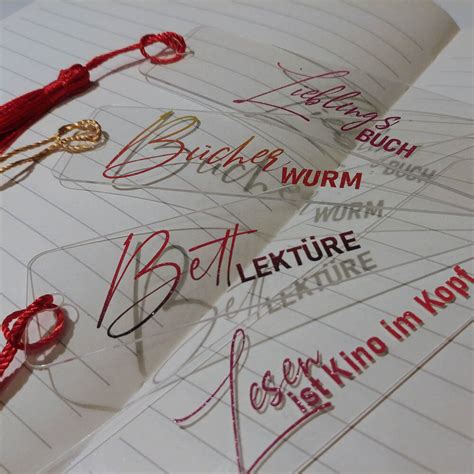 Lieblings
BUCH
Bücher
WURM
Bett LEKTÜRE
Lesen
ist Kino im Kopf